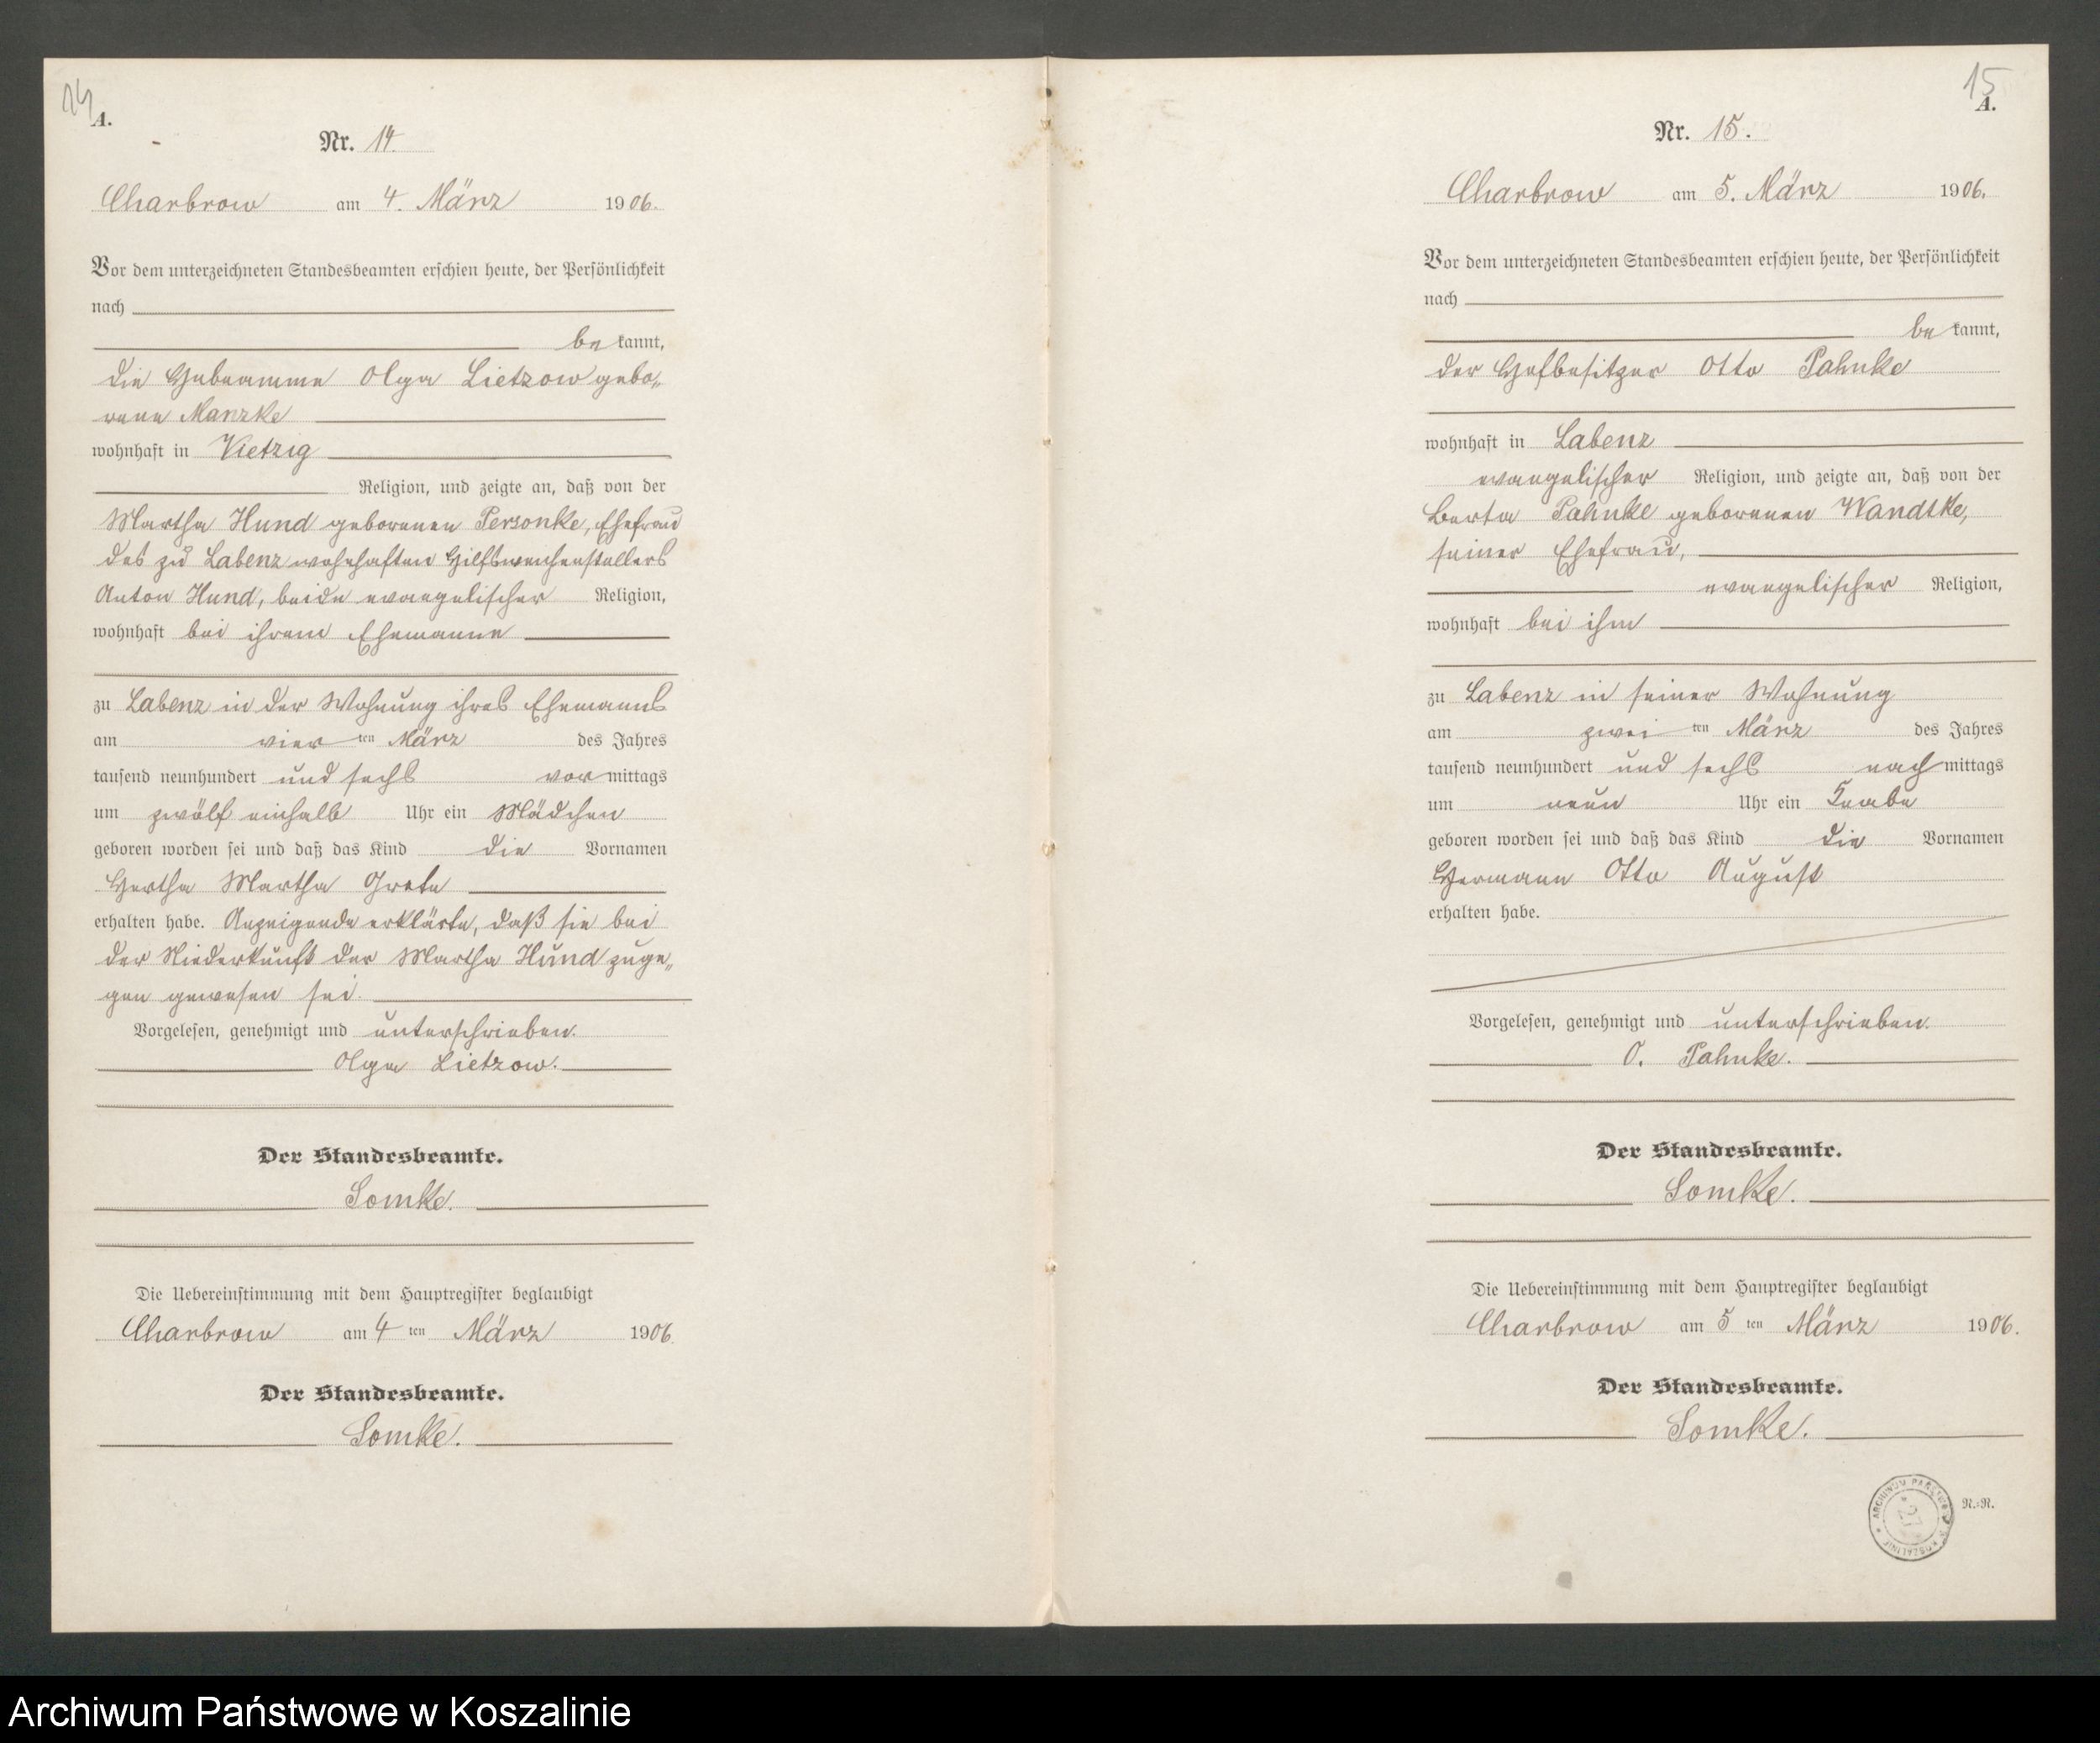 14
A.
Nr. 14.
Charbrow am 4. März 1906.
Vor dem unterzeichneten Standesbeamten erschien heute, der Persönlichkeit
nach
bekannt,
die Hebeamme Olga Lietzow gebo„
rene Manzke
wohnhaft in Vietzig
Religion, und zeigte an, daß von der
Martha Hund geborenen Personke, Ehefrau
des zu Labenz wohnhaften Hilfsweichenstellers
Anton Hund, beide evangelischer Religion,
wohnhaft bei ihrem Ehemanne
zu Labenz in der Wohnung ihres Ehemanns
am vier ten März des Jahres
tausend neunhundert und sechs vormittags
um zwölf einhalb Uhr ein Mädchen
geboren worden sei und daß das Kind die Vornamen
Hertha Martha Grete
erhalten habe. Anzeigende erklärte, daß sie bei
der Niederkunft der Martha Hund zuge„
gen gewesen sei.
Vorgelesen, genehmigt und unterschrieben.
Olga Lietzow.
Der Standesbeamte.
Somke.
Die Uebereinstimmung mit dem Hauptregister beglaubigt
Charbrow am 4 ten März 1906.
Der Standesbeamte.
Somke.
15
A.
Nr. 15.
Charbrow am 5. März 1906.
Vor dem unterzeichneten Standesbeamten erschien heute, der Persönlichkeit
nach
bekannt,
der Hofbesitzer Otto Pahnke
wohnhaft in Labenz
evangelischer Religion, und zeigte an, daß von der
Berta Pahnke geborenen Wandtke,
seiner Ehefrau,
evangelischer Religion,
wohnhaft bei ihm
zu Labenz in seiner Wohnung
am zwei ten März des Jahres
tausend neunhundert und sechs nachmittags
um neun Uhr ein Knabe
geboren worden sei und daß das Kind die Vornamen
Hermann Otto August
erhalten habe.
Vorgelesen, genehmigt und unterschrieben.
O. Pahnke.
Der Standesbeamte.
Somke.
Die Uebereinstimmung mit dem Hauptregister beglaubigt
Charbrow am 5 ten März 1906.
Der Standesbeamte.
Somke.
ARCHIWUM PAŃSTWOWE W KOSZALINIE
27
N.-R.
Archiwum Państwowe w Koszalinie